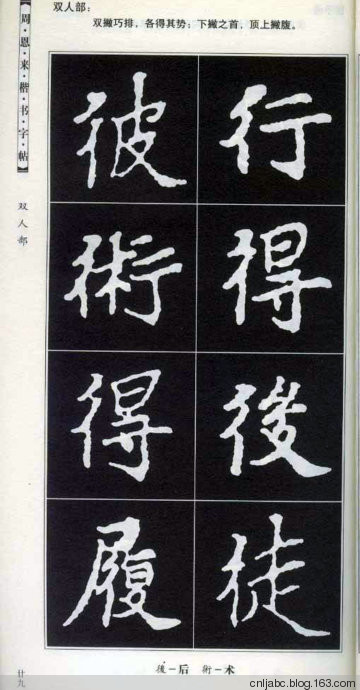 双人部：
双撇巧排，各得其势；下撇之首，顶上撇腹。
【周·恩·来·楷·书·字·帖】
双人部
行
得
後
徒
彼
術
得
履
後-后 術-术
廿九
cnljabc.blog.163.com